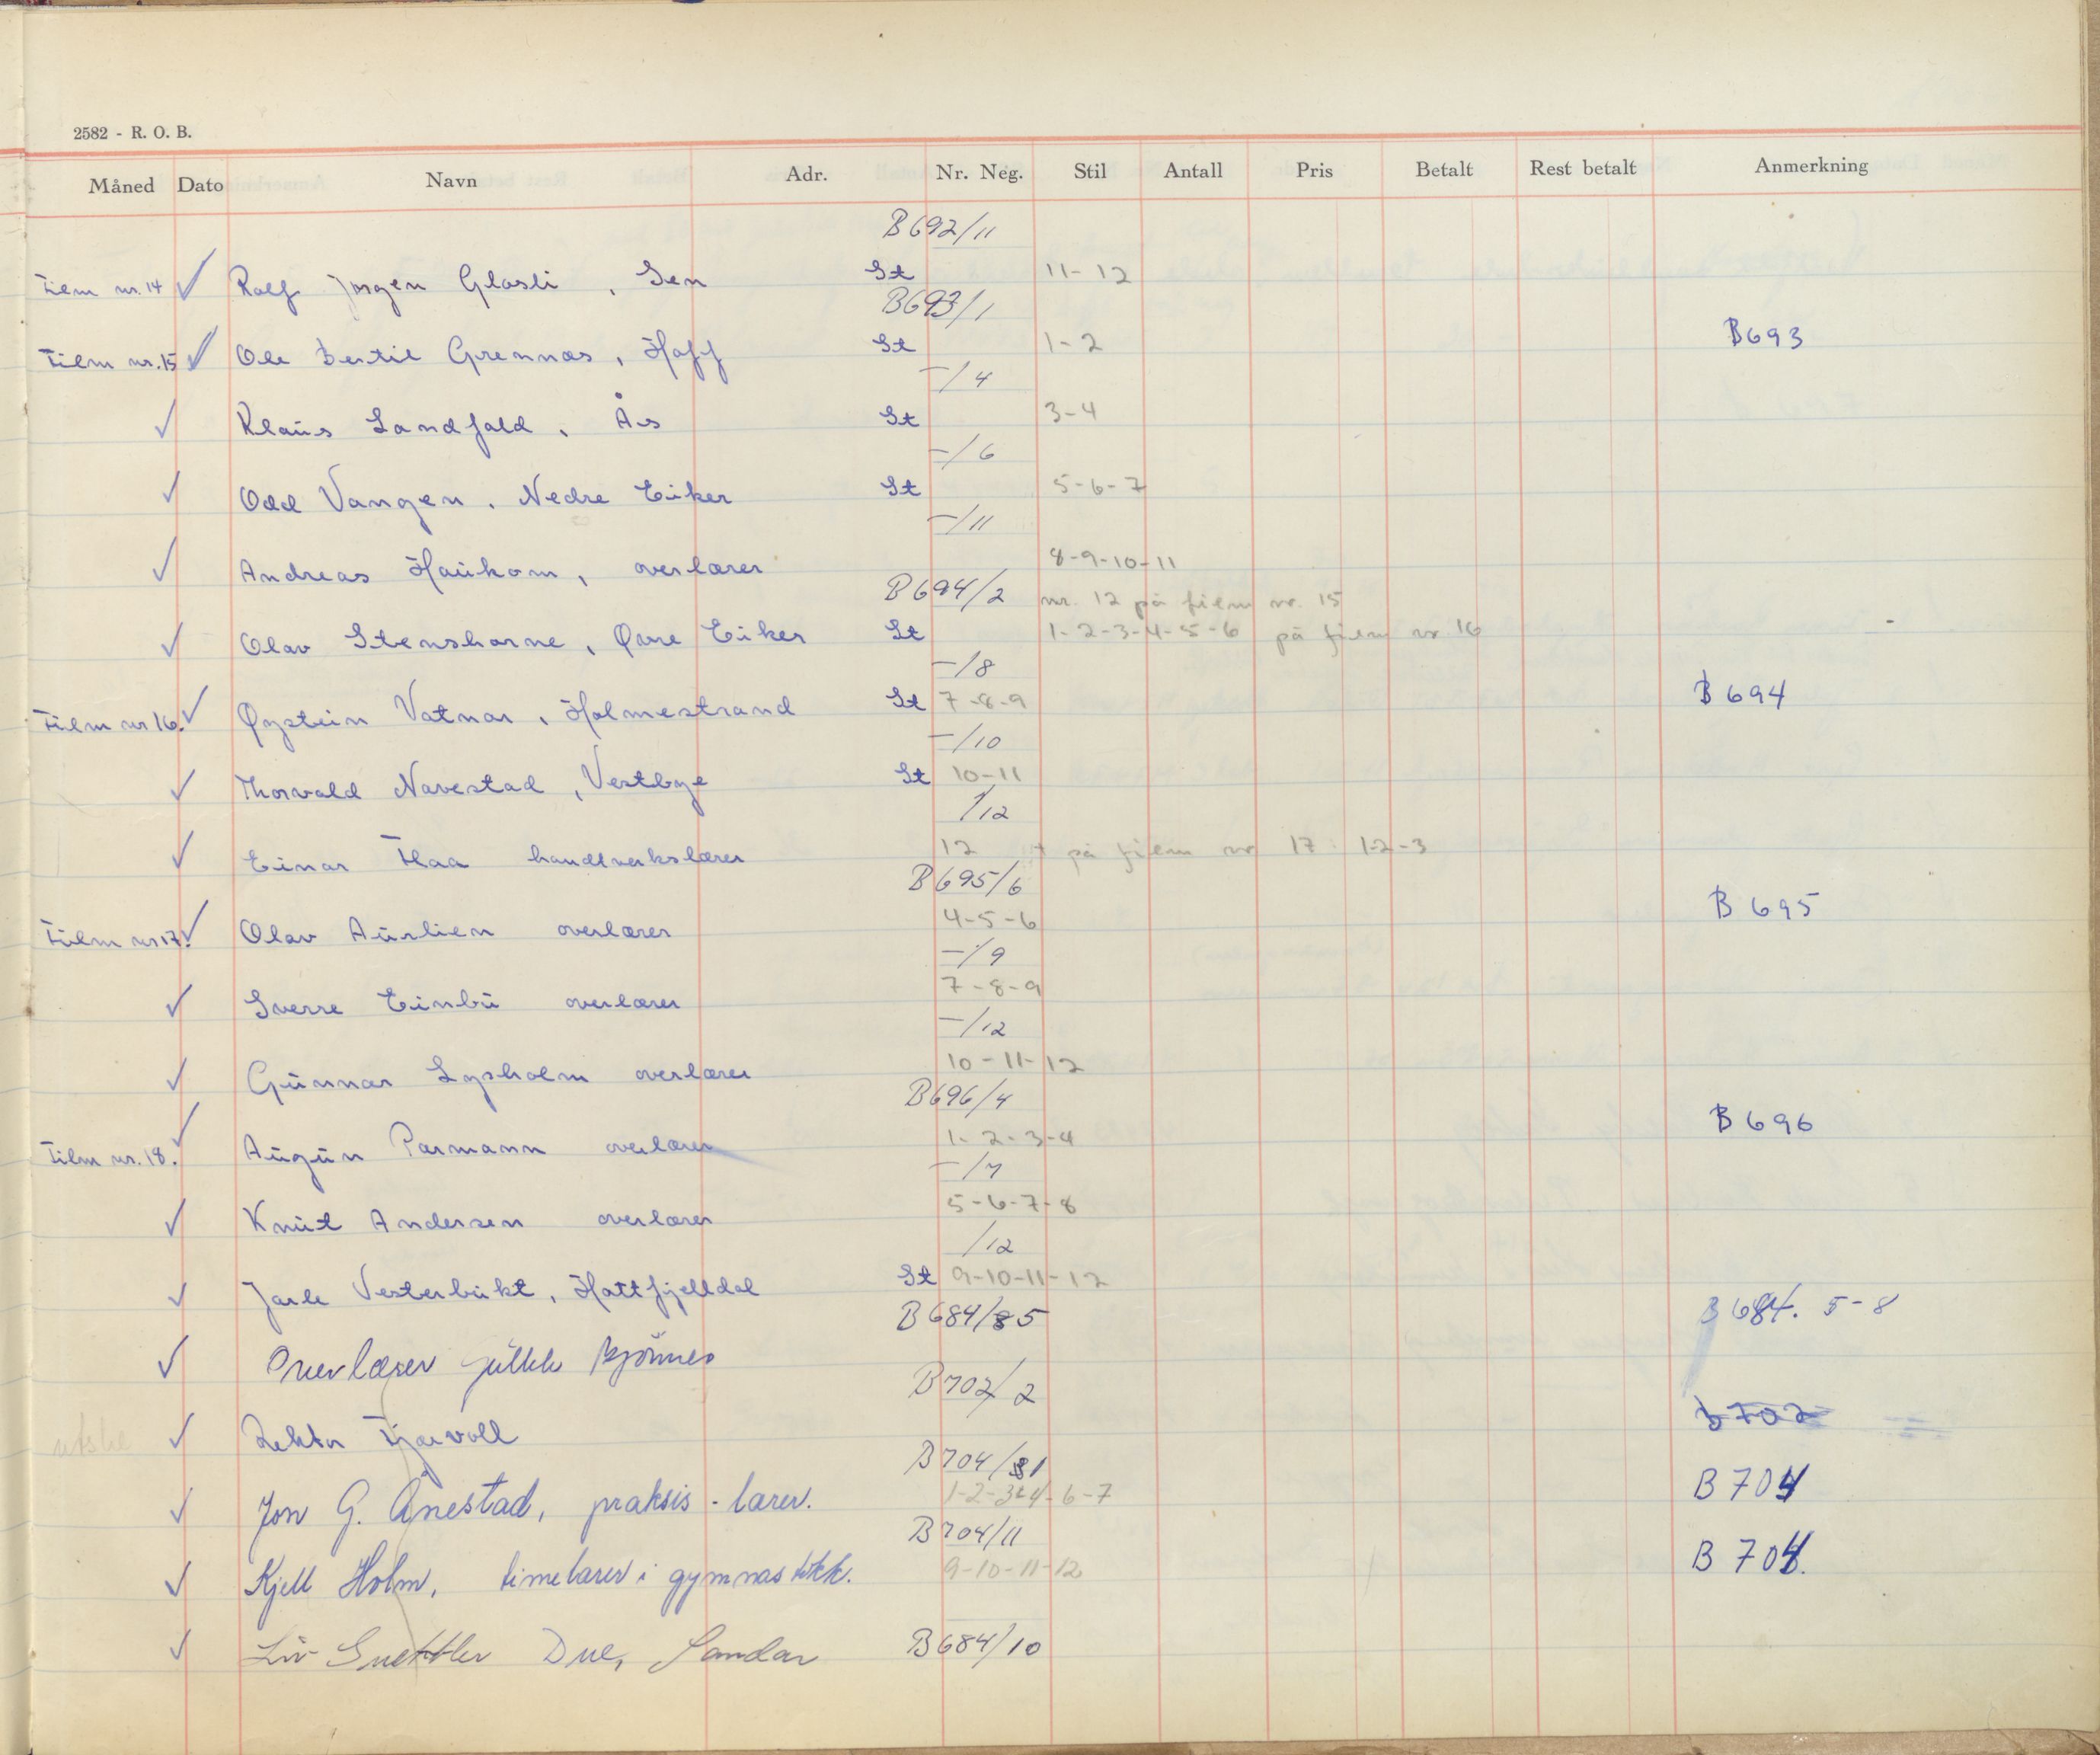 2582 - R. O. B.
Måned Dato Navn Adr. Nr. Neg. Stil Antall Pris Betalt Rest betalt Anmerkning
B692/11
Film nr. 14 ✓ Rolf Jørgen Glasli, Sen St 11-12
B693/1
Film nr. 15 ✓ Ole Bertil Grennæs, Hoff St 1-2 B693
-/4
✓ Klaus Landfald, Ås St 3-4
-/6
✓ Odd Vangen, Nedre Eiker St 5-6-7
-/11
✓ Andreas Haukom, overlærer 8-9-10-11
B694/2 nr. 12 på film nr. 15
✓ Olav Stenshorne, Øvre Eiker St 1-2-3-4-5-6 på film nr 16
-/8
Film nr 16. ✓ Øystein Vatnar, Holmestrand St 7-8-9 B694
-/10
✓ Thorvald Navestad, Vestbye St 10-11
/12
✓ Einar Flaa handverkslærer 12 + på film nr 17: 1-2-3
B695/6
Film nr 17. ✓ Olav Aurlien overlærer 4-5-6 B 695
-/9
✓ Sverre Einbu overlærer 7-8-9
-/12
✓ Gunnar Lysholm overlærer 10-11-12
B696/4
Film nr. 18. ✓ Augun Parmann overlærer 1-2-3-4 B 696
-/7
✓ Knut Andersen overlærer 5-6-7-8
/12
✓ Jarle Vesterbukt, Hattfjelldal St 9-10-11-12
B684/5 B 684. 5-8
✓ Overlærer
B702/2 B 702
✓ Rektor Fjærvoll
B704/1
✓ Jon G. Ånestad, praksis-lærer. 1-2-3-4-6-7 B 704
B704/11
✓ Kjell Holm, timelærer i gymnastikk. 9-10-11-12 B 704.
✓ Liv Due, Sandar B684/10